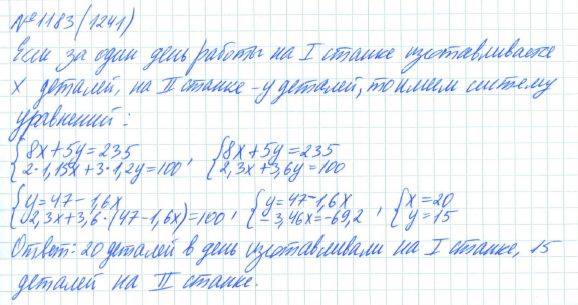 №1183 (1241)
Если за один день работы на I станке изготавливаете
x деталей, на II станке - y деталей, то имеем систему
уравнений:
{8x+5y=235 {8x+5y=235
{2·1,15x+3·1,2y=100, {2,3x+3,6y=100
{y=47-1,6x {y=47-1,6x {x=20
{2,3x+3,6·(47-1,6x)=100, {-3,46x=-69,2, {y=15
Ответ: 20 деталей в день изготавливали на I станке, 15
деталей на II станке.